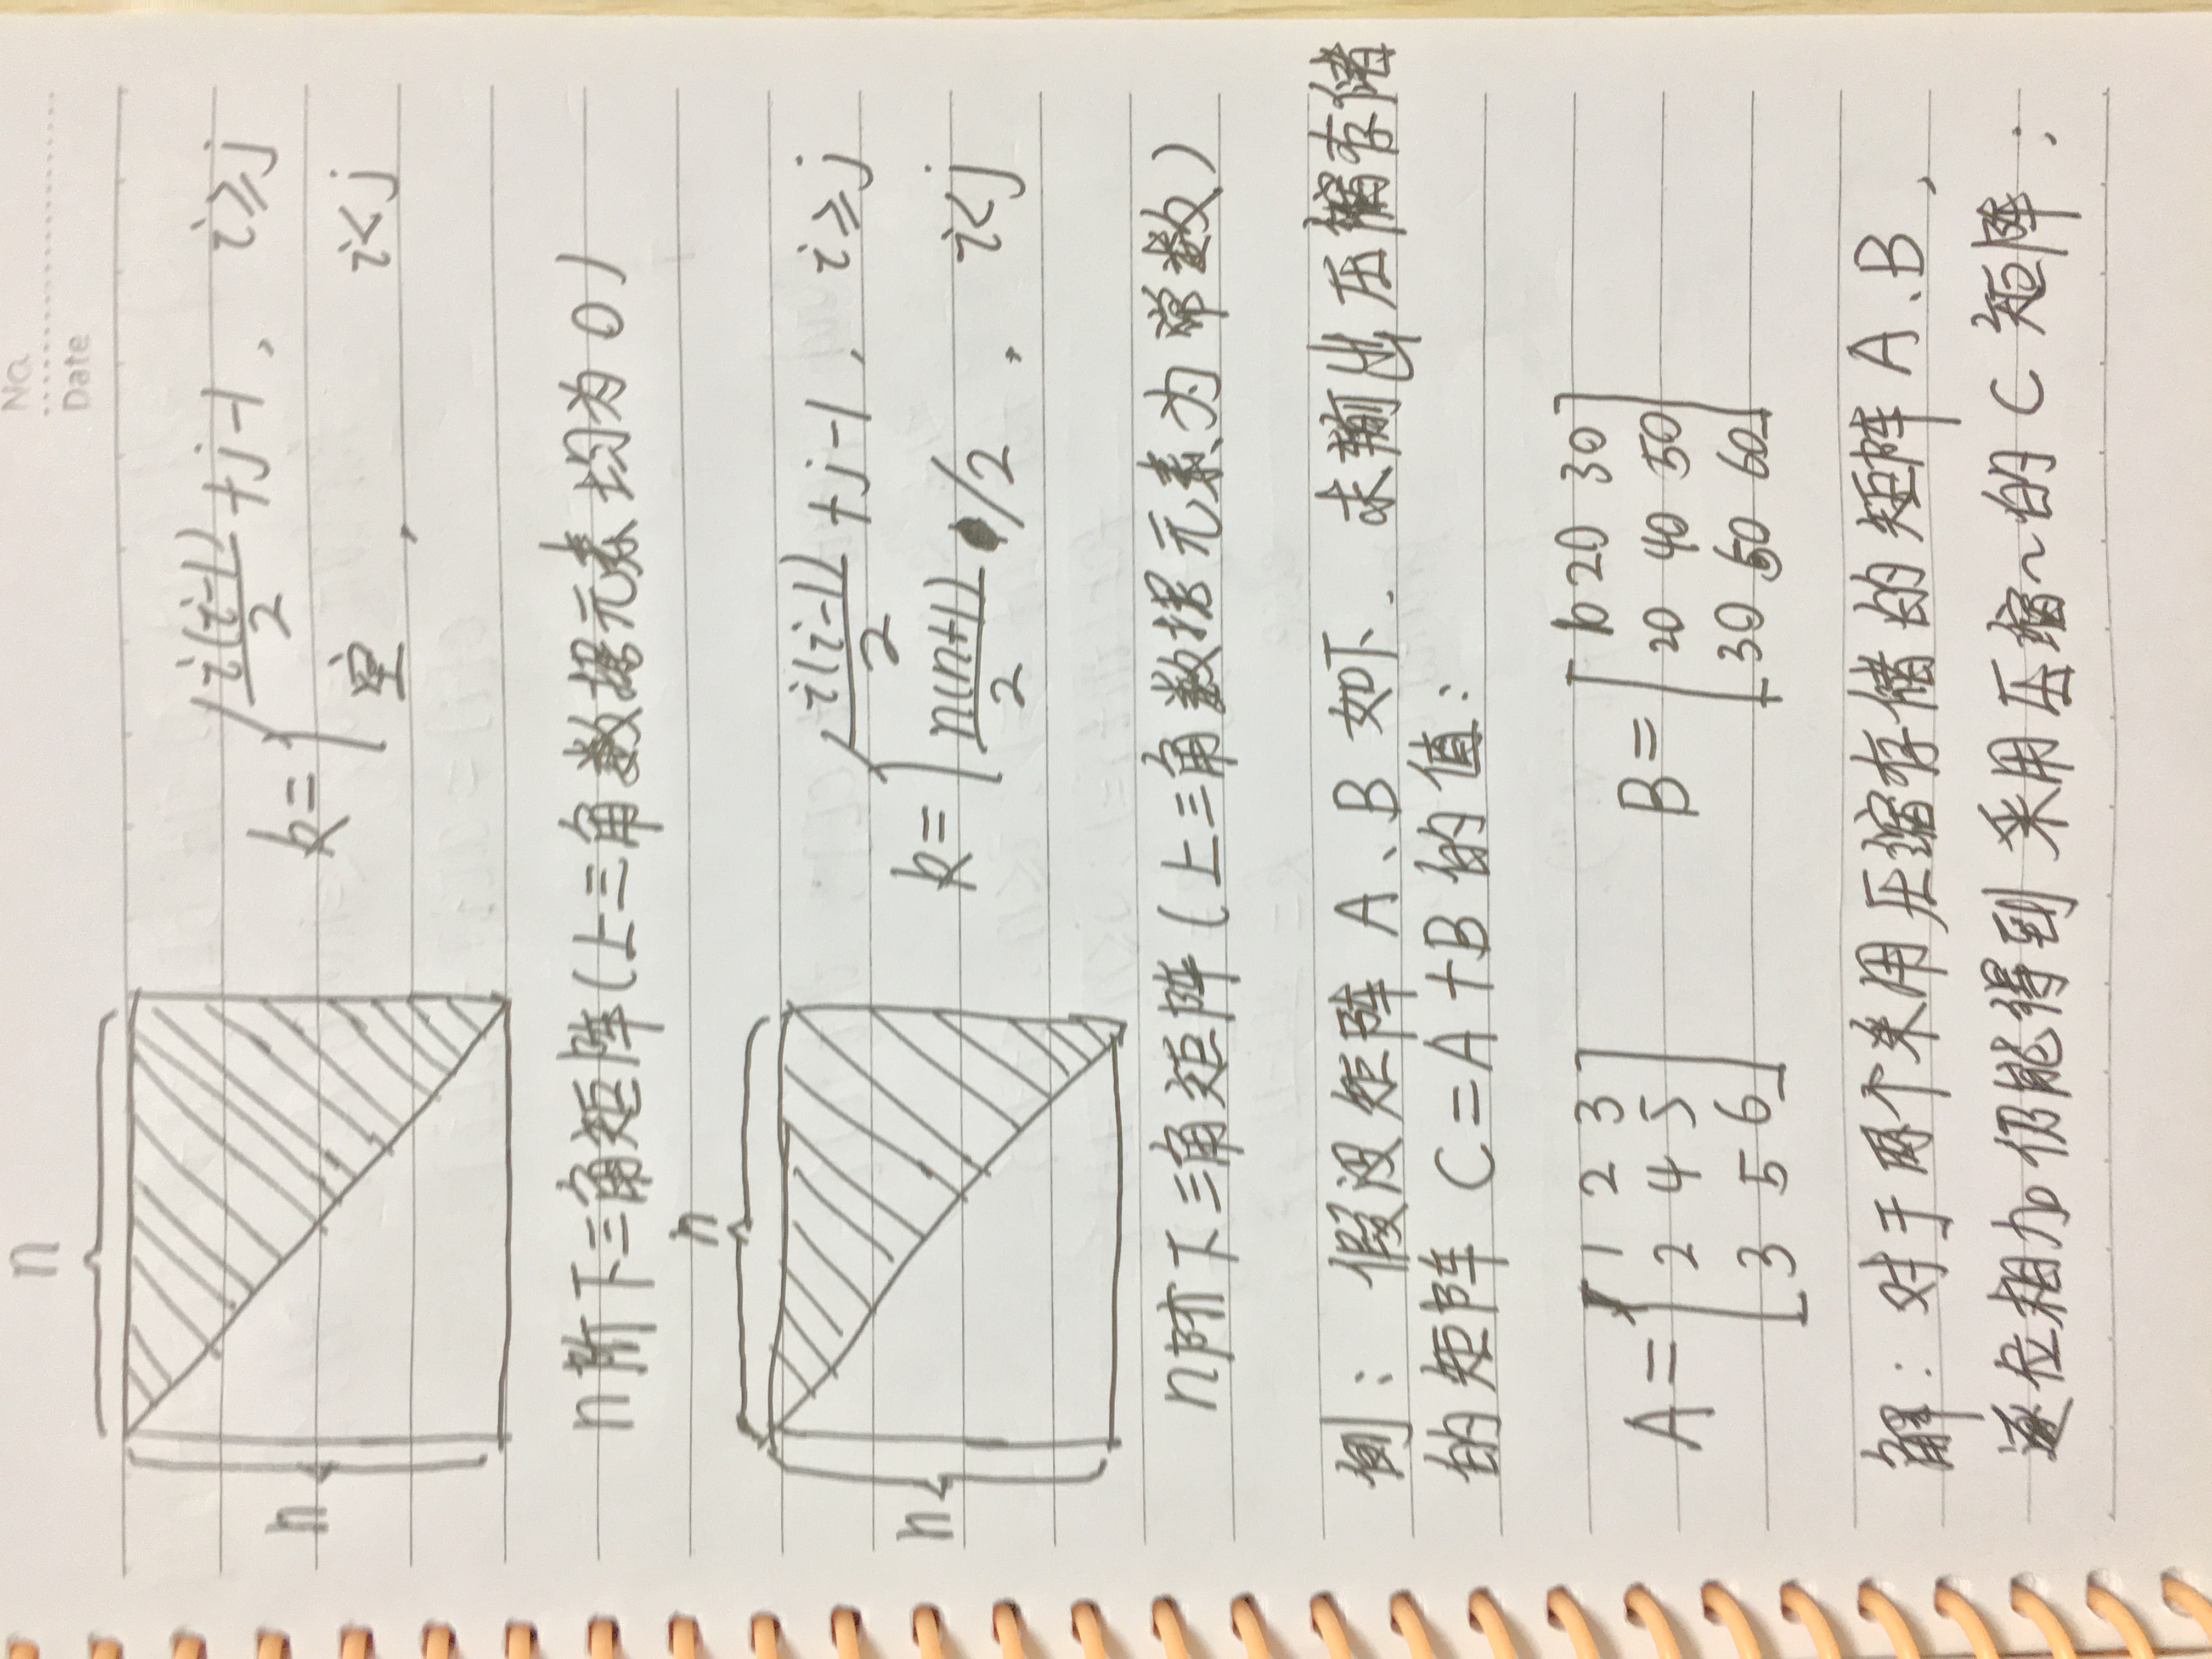 No.
Date
n
n
k= { i(i-1)/2 +j-1, i≥j
空, i<j
n阶下三角矩阵(上三角数据元素均为0)
n
n
k= { i(i-1)/2 +j-1, i≥j
n(n+1)/2 /2, i<j
n阶下三角矩阵(上三角数据元素为常数)
例: 假设矩阵 A、B 如下. 求输出压缩存储
的矩阵 C=A+B 的值:
A= [ 1 2 3
2 4 5
3 5 6 ]
B= [ 10 20 30
20 40 50
30 50 60 ]
解: 对于两个采用压缩存储的矩阵 A、B,
逐位相加仍能得到采用压缩~的 C 矩阵;